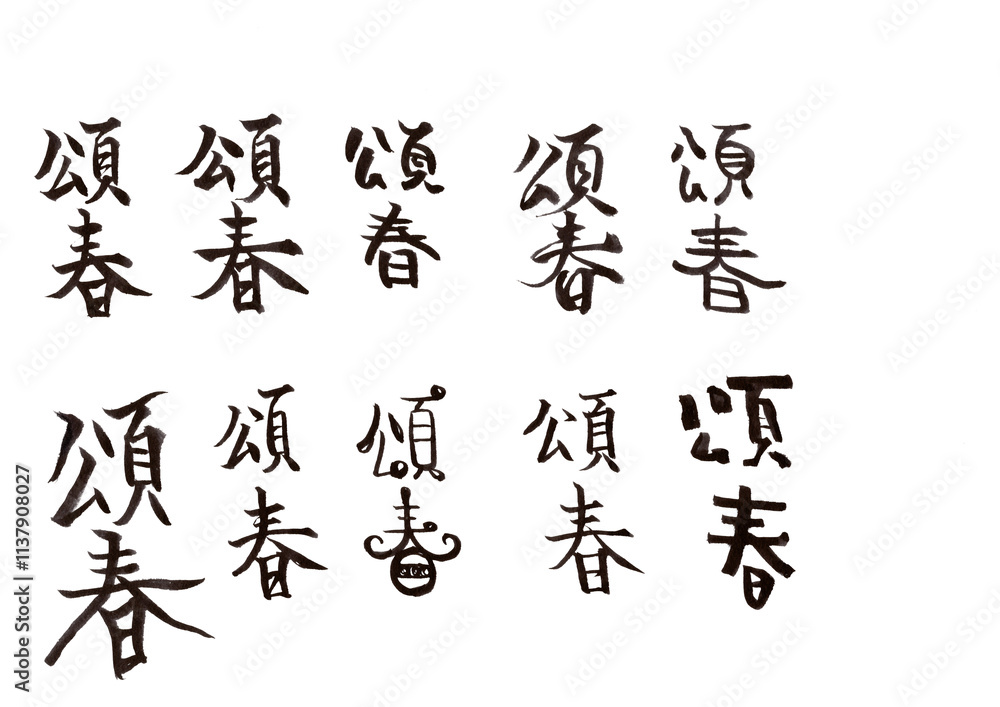 頌春
頌春
頌春
頌春
頌春
頌春
頌春
頌春
頌春
頌春
Adobe Stock | #1137908027